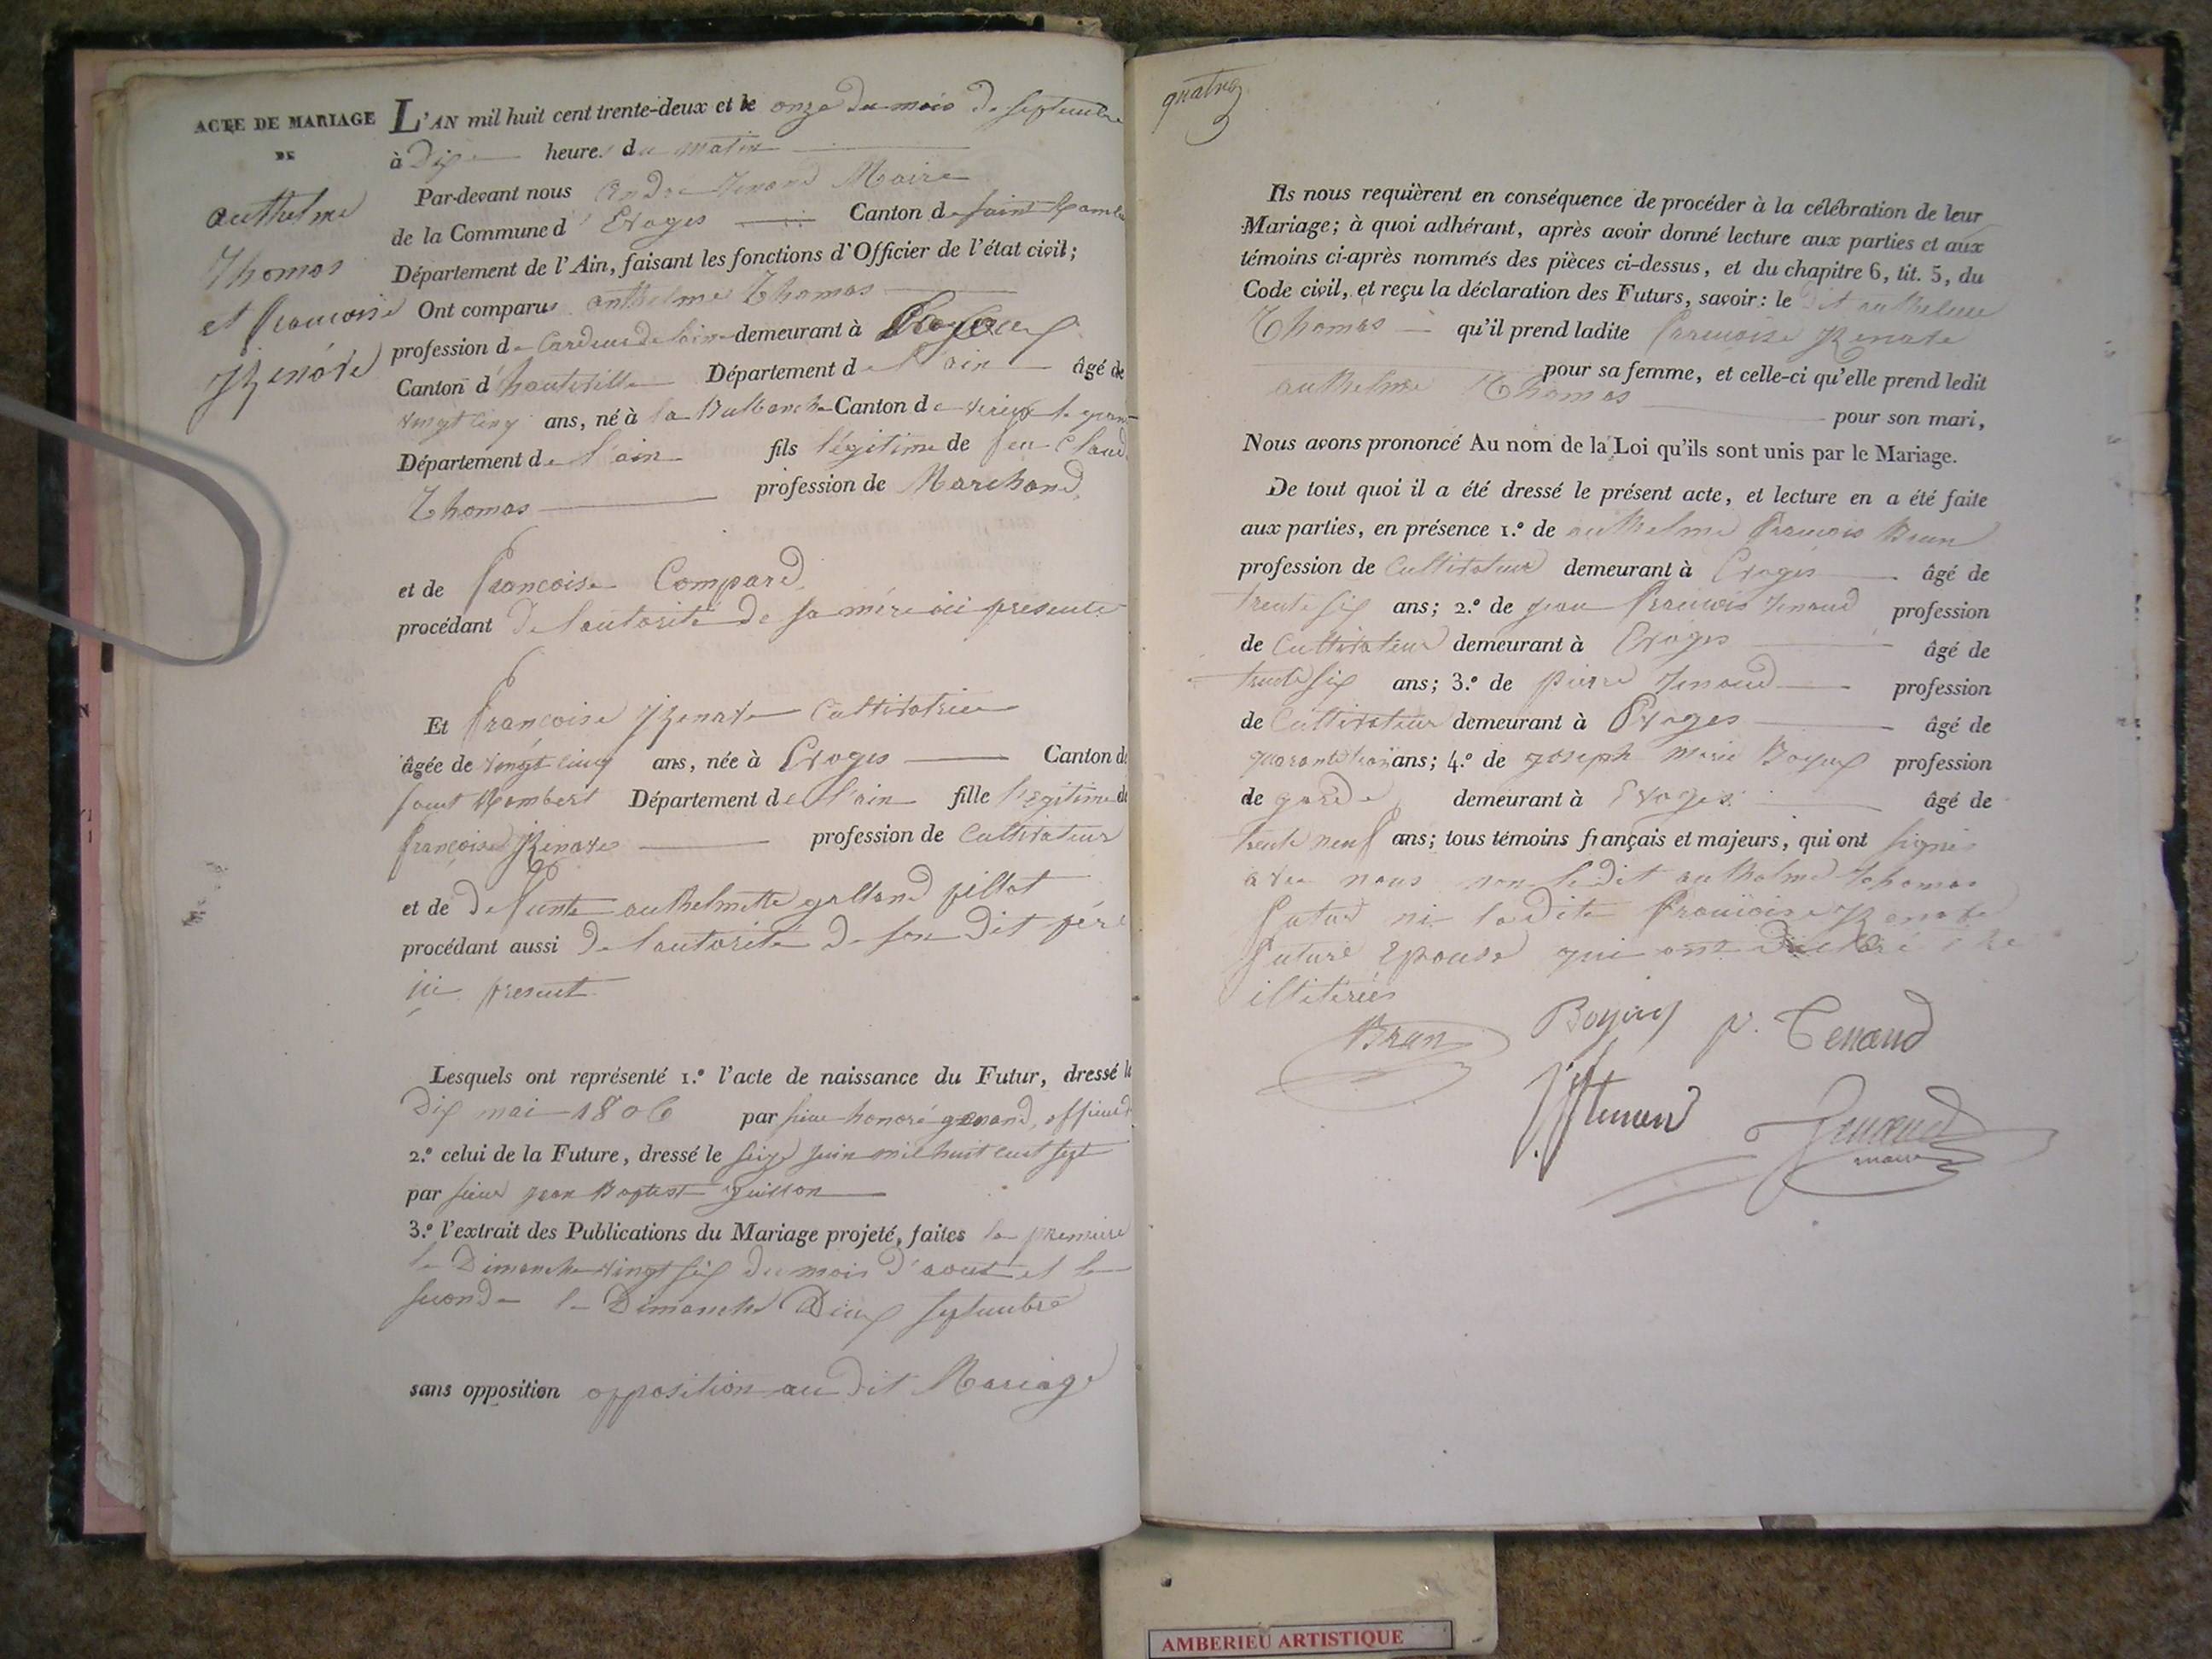 ACTE DE MARIAGE
DE
anthelme
Thomas
et francoise
L'AN mil huit cent trente-deux et le onze du mois de septembre
à Dix heures du matin
Par-devant nous andré Tenand Maire
de la Commune d' Evoges Canton de saint Rambe
Département de l'Ain, faisant les fonctions d'Officier de l'état civil;
Ont comparus anthelme Thomas
profession de Cardeur de laine demeurant à
Canton d'hauteville Département de l'ain âgé de
vingt cinq ans, né à la Balbanche Canton de virieux le grand
Département de l'ain fils légitime de feu Claude
Thomas profession de Marchand
et de francoise Compard
procédant De l'autorité de sa mére ici presente
Et françoise Renave Cultivatrice
âgée de vingt cinq ans, née à Evoges Canton de
saint Rambert Département de l'ain fille légitime de
profession de Cultivateur
et de defunte anthelmette galland pillot
procédant aussi de l'autorité de son dit pére
ici present
Lesquels ont représenté 1.º l'acte de naissance du Futur, dressé le
Dix mai 1806 par sieur honoré
2.º celui de la Future, dressé le seize juin mil huit cent sept
par sieur jean Baptist
3.º l'extrait des Publications du Mariage projeté, faites la premiere
le Dimanche vingt six du mois d'aout et la
seconde le Dimanche Deux septembre
sans opposition opposition au dit Mariage
quatre
Ils nous requièrent en conséquence de procéder à la célébration de leur
Mariage; à quoi adhérant, après avoir donné lecture aux parties et aux
témoins ci-après nommés des pièces ci-dessus, et du chapitre 6, tit. 5, du
Code civil, et reçu la déclaration des Futurs, savoir: le dit anthelme
Thomas qu'il prend ladite francoise Renave
pour sa femme, et celle-ci qu'elle prend ledit
anthelme Thomas pour son mari,
Nous avons prononcé Au nom de la Loi qu'ils sont unis par le Mariage.
De tout quoi il a été dressé le présent acte, et lecture en a été faite
aux parties, en présence 1.º de anthelme francois Brun
profession de Cultivateur demeurant à Evoges âgé de
trente six ans; 2.º de jean francois Tenand profession
de Cultivateur demeurant à Evoges âgé de
trente six ans; 3.º de pierre Tenand profession
de Cultivateur demeurant à Evoges âgé de
quarant trois ans; 4.º de joseph Marie profession
de garde demeurant à Evoges âgé de
trente neuf ans; tous témoins français et majeurs, qui ont signés
avec nous non le dit anthelme Thomas
futur ni la dite francoise Renave
future epouse qui ont declaré être
illitérés
Brun
p. Tenand
Tenand
maire
AMBERIEU ARTISTIQUE